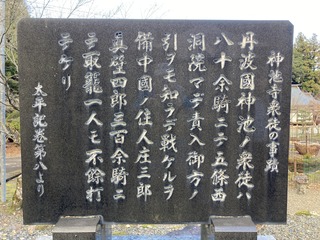 神池寺衆徒の事蹟
丹波國神池ノ衆徒ハ
八十余騎ニテ五條西
洞院マテ責入御方ノ
引ヲモ知ラデ戦ケルヲ
備中國ノ住人庄三郎
真壁四郎三百余騎ニ
テ取籠一人モ不餘打
テケリ
太平記巻第八より